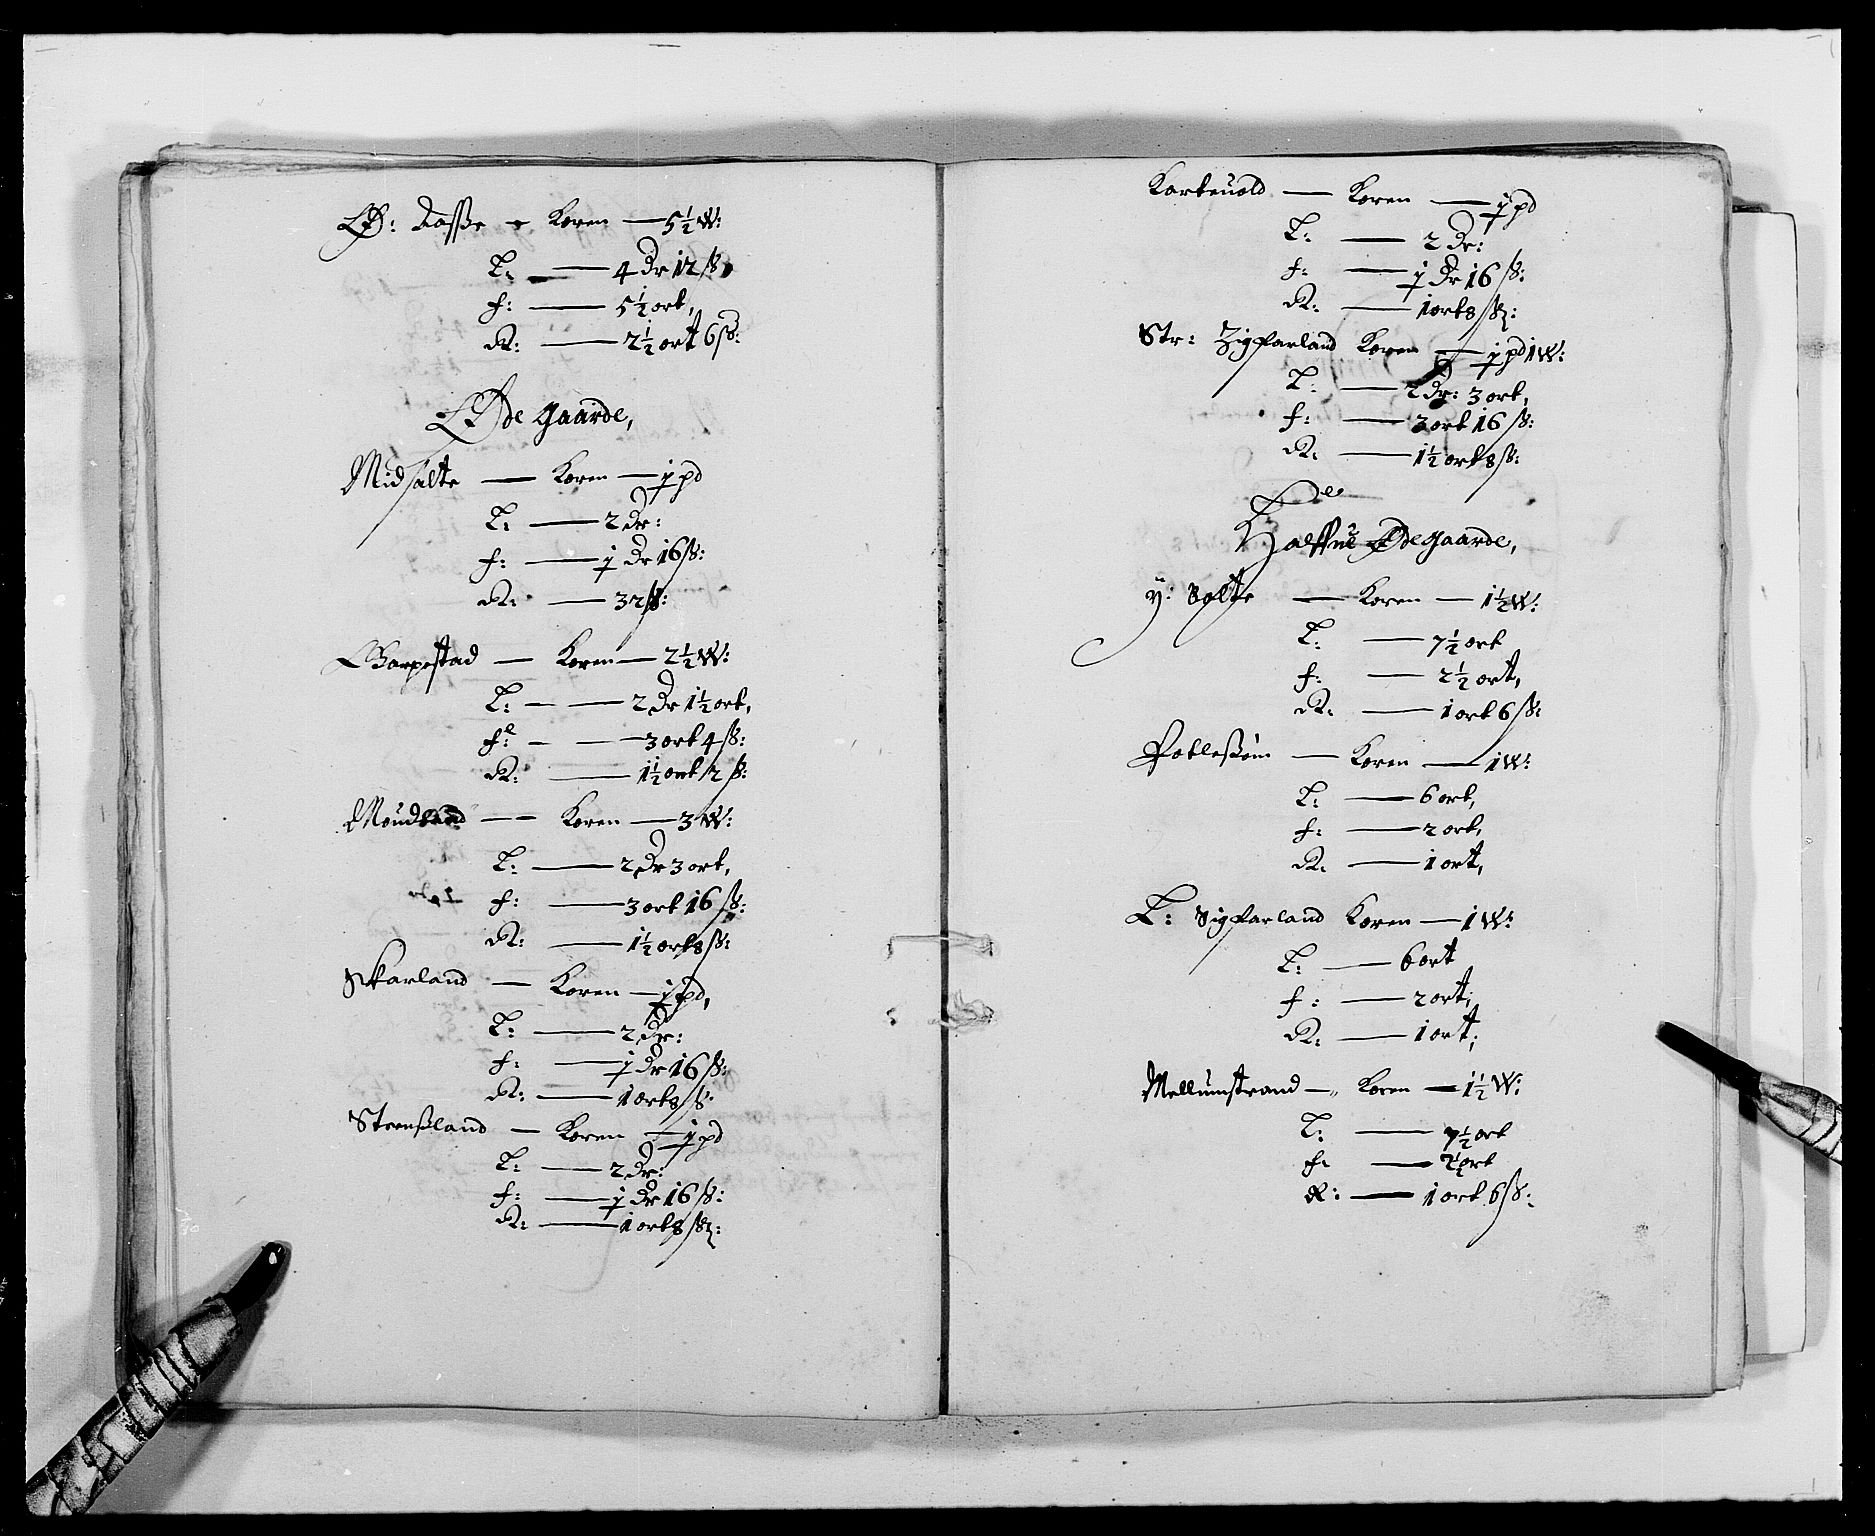 Ø: Aasse — Koren — 5½ W:
L: — 4 Dr 12 ß,
f: — 5½ ort,
R: — 2½ ort 6 ß:
Øde gaarde,
Midsalte — Koren — j pd
L: — 2 Dr:
f: — j Dr 16 ß:
R: — 32 ß:
Koren — 2½ W:
L: — 2 Dr 1½ ort,
f: — 3 ort 4 ß:
R: — 1½ ort 2 ß:
Moudland — Koren — 3 W:
L: — 2 Dr 3 ort,
f: — 3 ort 16 ß:
R: — 1½ ort 8 ß:
Skarland — Koren — j pd,
L: — 2 Dr:
f: — j Dr 16 ß:
R: — 1 ort 8 ß:
Steensland — Koren — j pd
L: — 2 Dr:
f: — j Dr 16 ß:
R: — 1 ort 8 ß:
Korteuold — Koren — j pd
L: — 2 Dr:
f: — j Dr 16 ß:
R: — 1 ort 8 ß:
Str: Zigfarland Koren — j pd 1 W:
L: — 2 Dr: 3 ort,
f: — 3 ort 16 ß:
R: — 1½ ort 8 ß:
Halfue Ødegaarde,
y: Solte — Koren — 1½ W:
L: — 7½ ort
f: — 2½ ort,
R: — 1 ort 6 ß:
Koren — 1 W:
L: — 6 ort,
f: — 2 ort,
R: — 1 ort,
L: Sigfarland Koren — 1 W:
L: — 6 ort
f: — 2 ort,
R: — 1 ort,
Mellumstrand — Koren — 1½ W:
L: — 7½ ort
f: — 2½ ort
R: — 1 ort 6 ß: